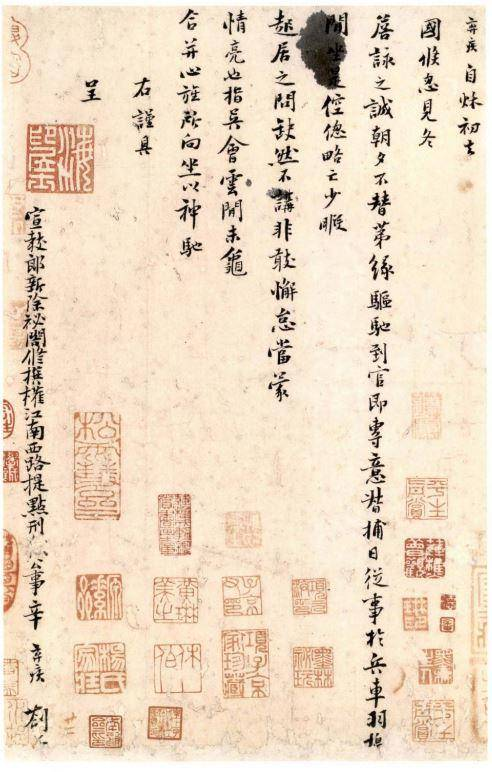 弃疾自秋初去
國倏忽見冬
詹詠之誠朝夕不替第緣驅馳到官即專意督捕日從事於兵車羽檄
間坐是倥傯略亡少暇
起居之問缺然不講非敢懈怠當蒙
情亮也指吳會雲間未龜
合并心旌所向坐以神馳
右謹具
呈
宣教郎新除祕閣修撰權江南西路提點刑獄公事辛弃疾劄子
項子京家珍藏